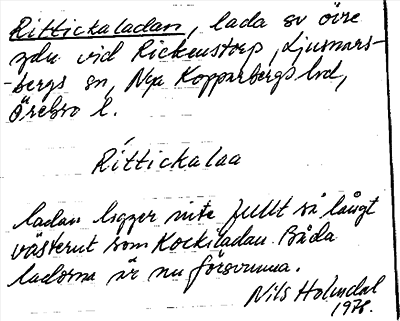 Rittickaladan, lada sv övre
gdn vid Rickenstorp, Ljusnars-
-bergs sn, Nya Kopparbergs hd,
Örebro l.
Rittickalaa
Ladan ligger inte fullt så långt
västerut som Kockiladan. Båda
ladorna är nu försvunna.
Nils Holmdal
1978.